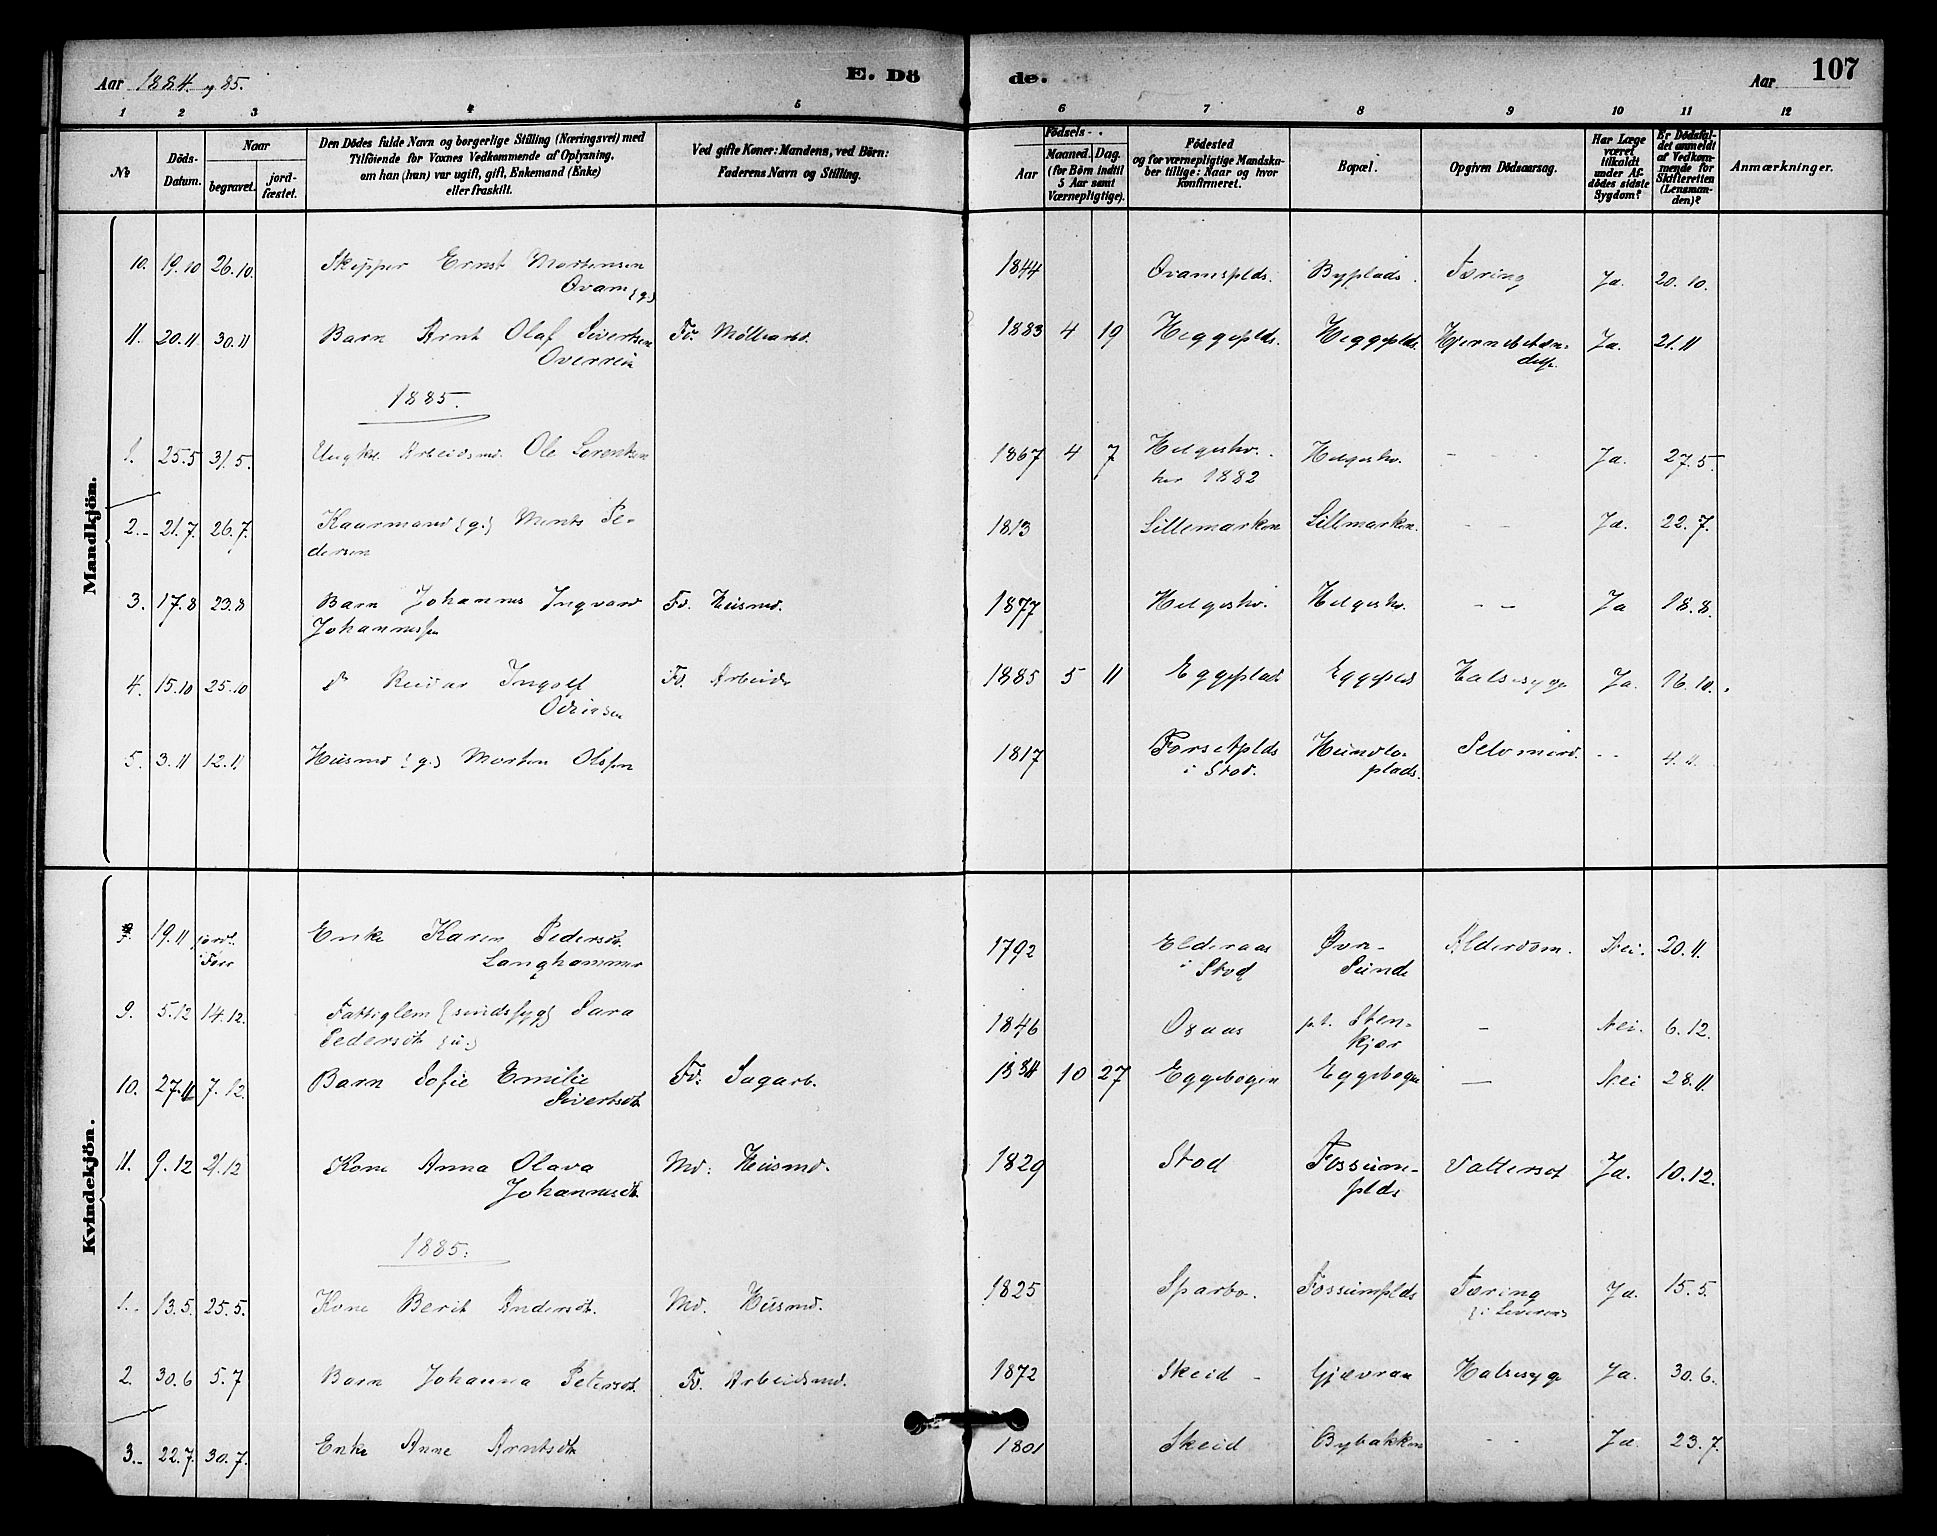 Aar 1884 og 85.
E. Dö
de.
Aar
107
1 2 3 4 5 6 7 8 9 10 11 12
No
Döds-
Datum.
Naar
begravet.
jord-
fæstet.
Den Dödes fulde Navn og borgerlige Stilling (Næringsvei) med
Tilföiende for Voxnes Vedkommende af Oplysning,
om han (hun) var ugift, gift, Enkemand (Enke)
eller fraskilt.
Ved gifte Koner: Mandens, ved Börn:
Faderens Navn og Stilling.
Födsels-
Aar
Maaned. Dag.
(for Börn indtil
5 Aar samt
Værnepligtige).
Födested
og for værnepligtige Mandska-
ber tillige: Naar og hvor
konfirmeret.
Bopæl.
Opgiven Dödsaarsag.
Har Læge
været
tilkaldt
under Af-
dödes sidste
Sygdom?
Er Dödsfal-
det anmeldt
af Vedkom-
mende for
Skifteretten
(Lensman-
den)?
Anmærkninger.
Mandkjön.
10. 19.10 26.10 Skipper Ernst Mortensen 1844 Byplads. Tæring Ja. 20.10.
Ovam (g.)
11. 20.11 30.11 Barn Arnt Olaf Sivertsen Fd. 1883 4 19 Heggeplds. Heggeplds. Hjernebetæn- Ja. 21.11
Overrein
delse
1885.
1. 25.5 31.5. Ungkl. Arbeidsmd. Ole Lorentsen 1867 4 7 Helgeshv. Helgeshv. - - - Ja. 27.5.
her 1882
2. 21.7. 26.7. Kaarmand (g.) Ments Pe- 1813 Lillemarken Lillmarken. - - Ja. 22.7.
dersen
3. 17.8 23.8 Barn Johannes Ingvard Fd. Husmd. 1877 Helgeshv. Helgeshv. - - Ja 18.8.
Johannessen
4. 15.10 25.10 do Reidar Ingolf Fd. Arbeidr 1885 5 11 Eggeplads Eggeplds Halssyge Ja. 16.10.
Odinsen
5. 3.11 12.11 Husmd (g.) Morten Olssen 1817 Forsetplds Hundlo- Selvmord. - - 4.11.
i Stod. plads.
Kvindekjön.
8. 19.11 jordf. Enke Karen Pedersdt. 1792 Elderaas Øvr- Alderdom. Nei. 20.11.
i Foss Langhammer i Stod Sunde
9. 5.12 14.12. Fattiglem (sindssyg) Sara 1846 Ogaas p.t. Sten- - Nei. 6.12.
Pedersdt (u.) kjær
10. 27.11 7.12 Barn Sofie Emilie Fd: Sagarb. 1884 10 27 Eggebogen Eggebogen - Nei 28.11.
Sivertsdt.
11. 9.12 21.12 Kone Anna Olava Md: Husmd. 1829 Stod Fossum- Vattersot Ja. 10.12.
Johannesdt. plds
1885.
1. 13.5. 25.5. Kone Berit Andersdt. Md. Husmd. 1825 Sparbo. Fossumplds Tæring Ja. 15.5.
(i Leveren)
2. 30.6 5.7 Barn Johanna Petersdt. Fd. Arbeidsmd. 1872 Skeid - Gjævran Halssyge Ja. 30.6.
3. 22.7. 30.7. Enke Anne Arntsdt. 1801 Skeid Bybakken - - Ja. 23.7.